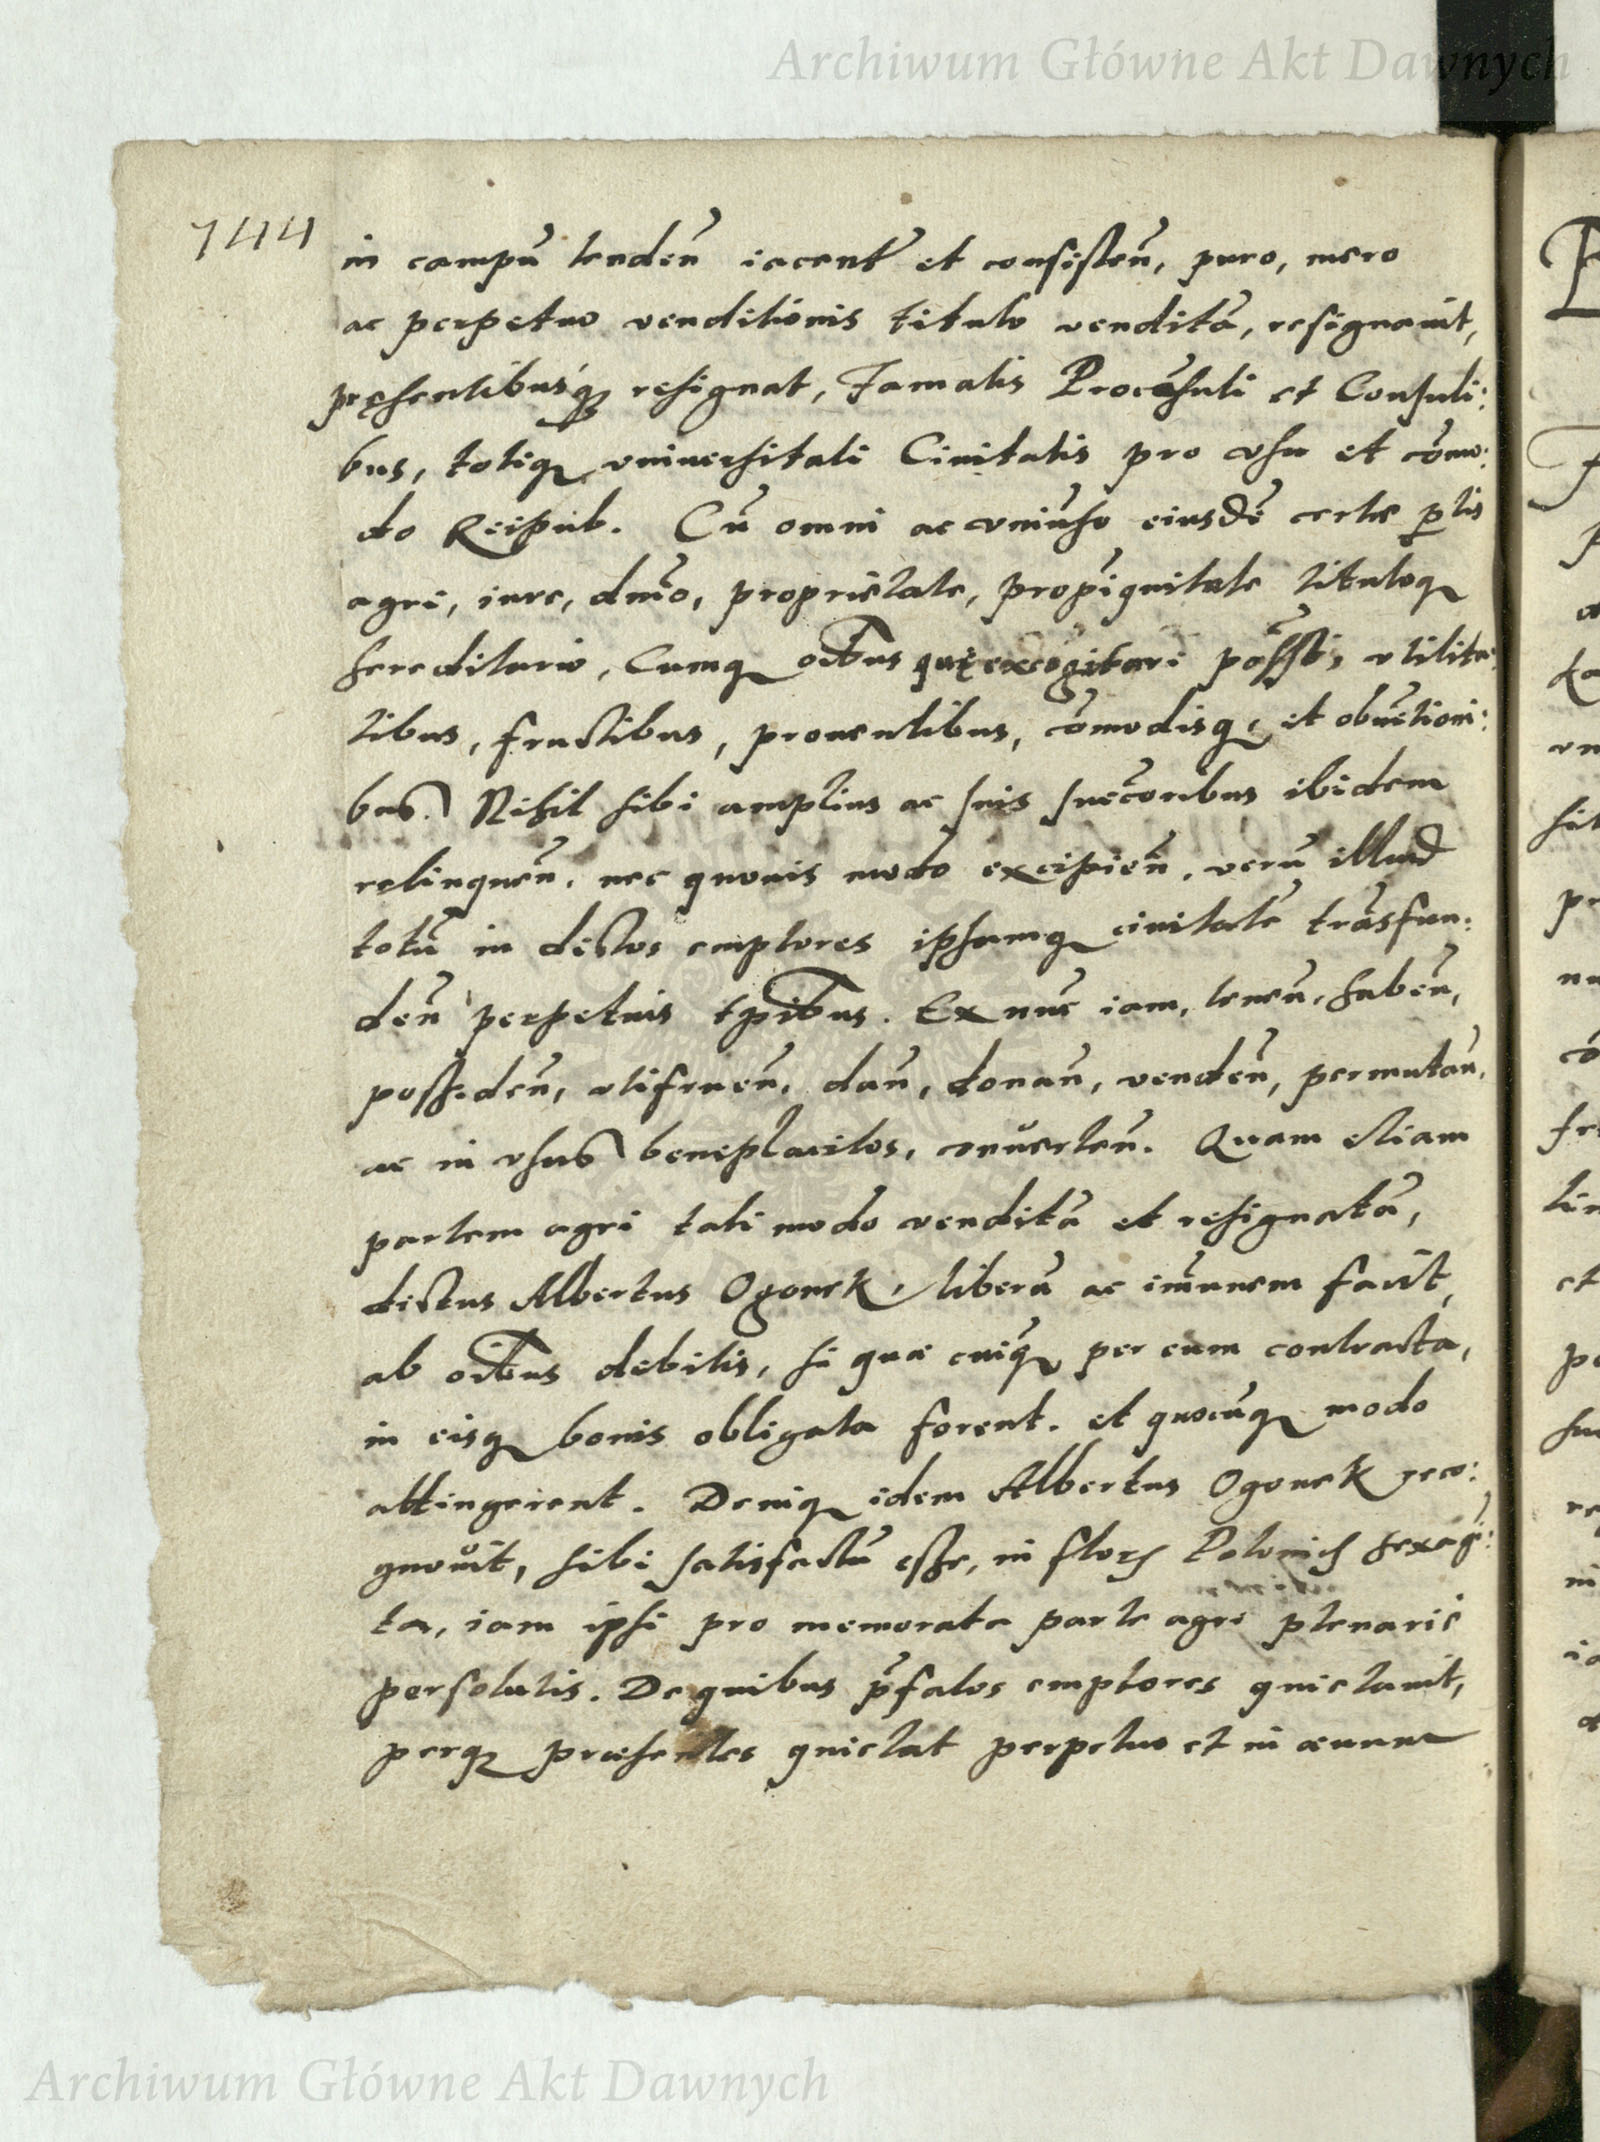 Archiwum Główne Akt Dawnych
744
in campũ tendeñ iaceñt et consisteñ, puro, mero
ac perpetuo venditionis titulo venditã, resignauit,
pręsentibusq́; resignat, Famatis Procõsuli et Consuli:
bus, totiq; vniuersitati Ciuitatis pro vsu et cõmo:
do Reipub. Cũ omni ac vniũso eiusdẽ certe ꝑtis
agri, iure, dnĩo, proprietate, propĩquitate tituloq;
hereditario, Cumq; oĩbus quę excogitari põsst, vtilita:
tibus, fructibus, prouentibus, cõmodisq; et obuẽtioni:
bus. Nihil sibi amplius ac suis succ̃oribus ibidem
relinqueñ, nec quouis modo excipieñ, verũ illud
totũ in dictos emptores ipsamq; ciuitatẽ trãsfun:
deñ perpetuis tp̃ibus. Ex nũc iam, teneñ, habeñ,
possideñ, vtifrueñ, dañ, donañ, vendeñ, permutañ,
ac in vsus beneplacitos, conũerteñ. Quam etiam
partem agri tali modo venditã et resignatã,
dictus Albertus Ogonek, liberã ac im̃unem facit,
ab oĩbus debitis, si quæ cuiq; per eum contracta,
in eisq; bonis obligata forent. et quocũq; modo
attingerent. Deniq; idem Albertus Ogonek reco:
gnouit, sibi satisfactũ esse, in floreñ Polonicĩs sexagĩ:
ta, iam ipsi pro memorata parte agri plenarie
persolutis. De quibus p̃fatos emptores quietauit,
perq; præsentes quietat perpetuo et in æuum
Archiwum Główne Akt Dawnych